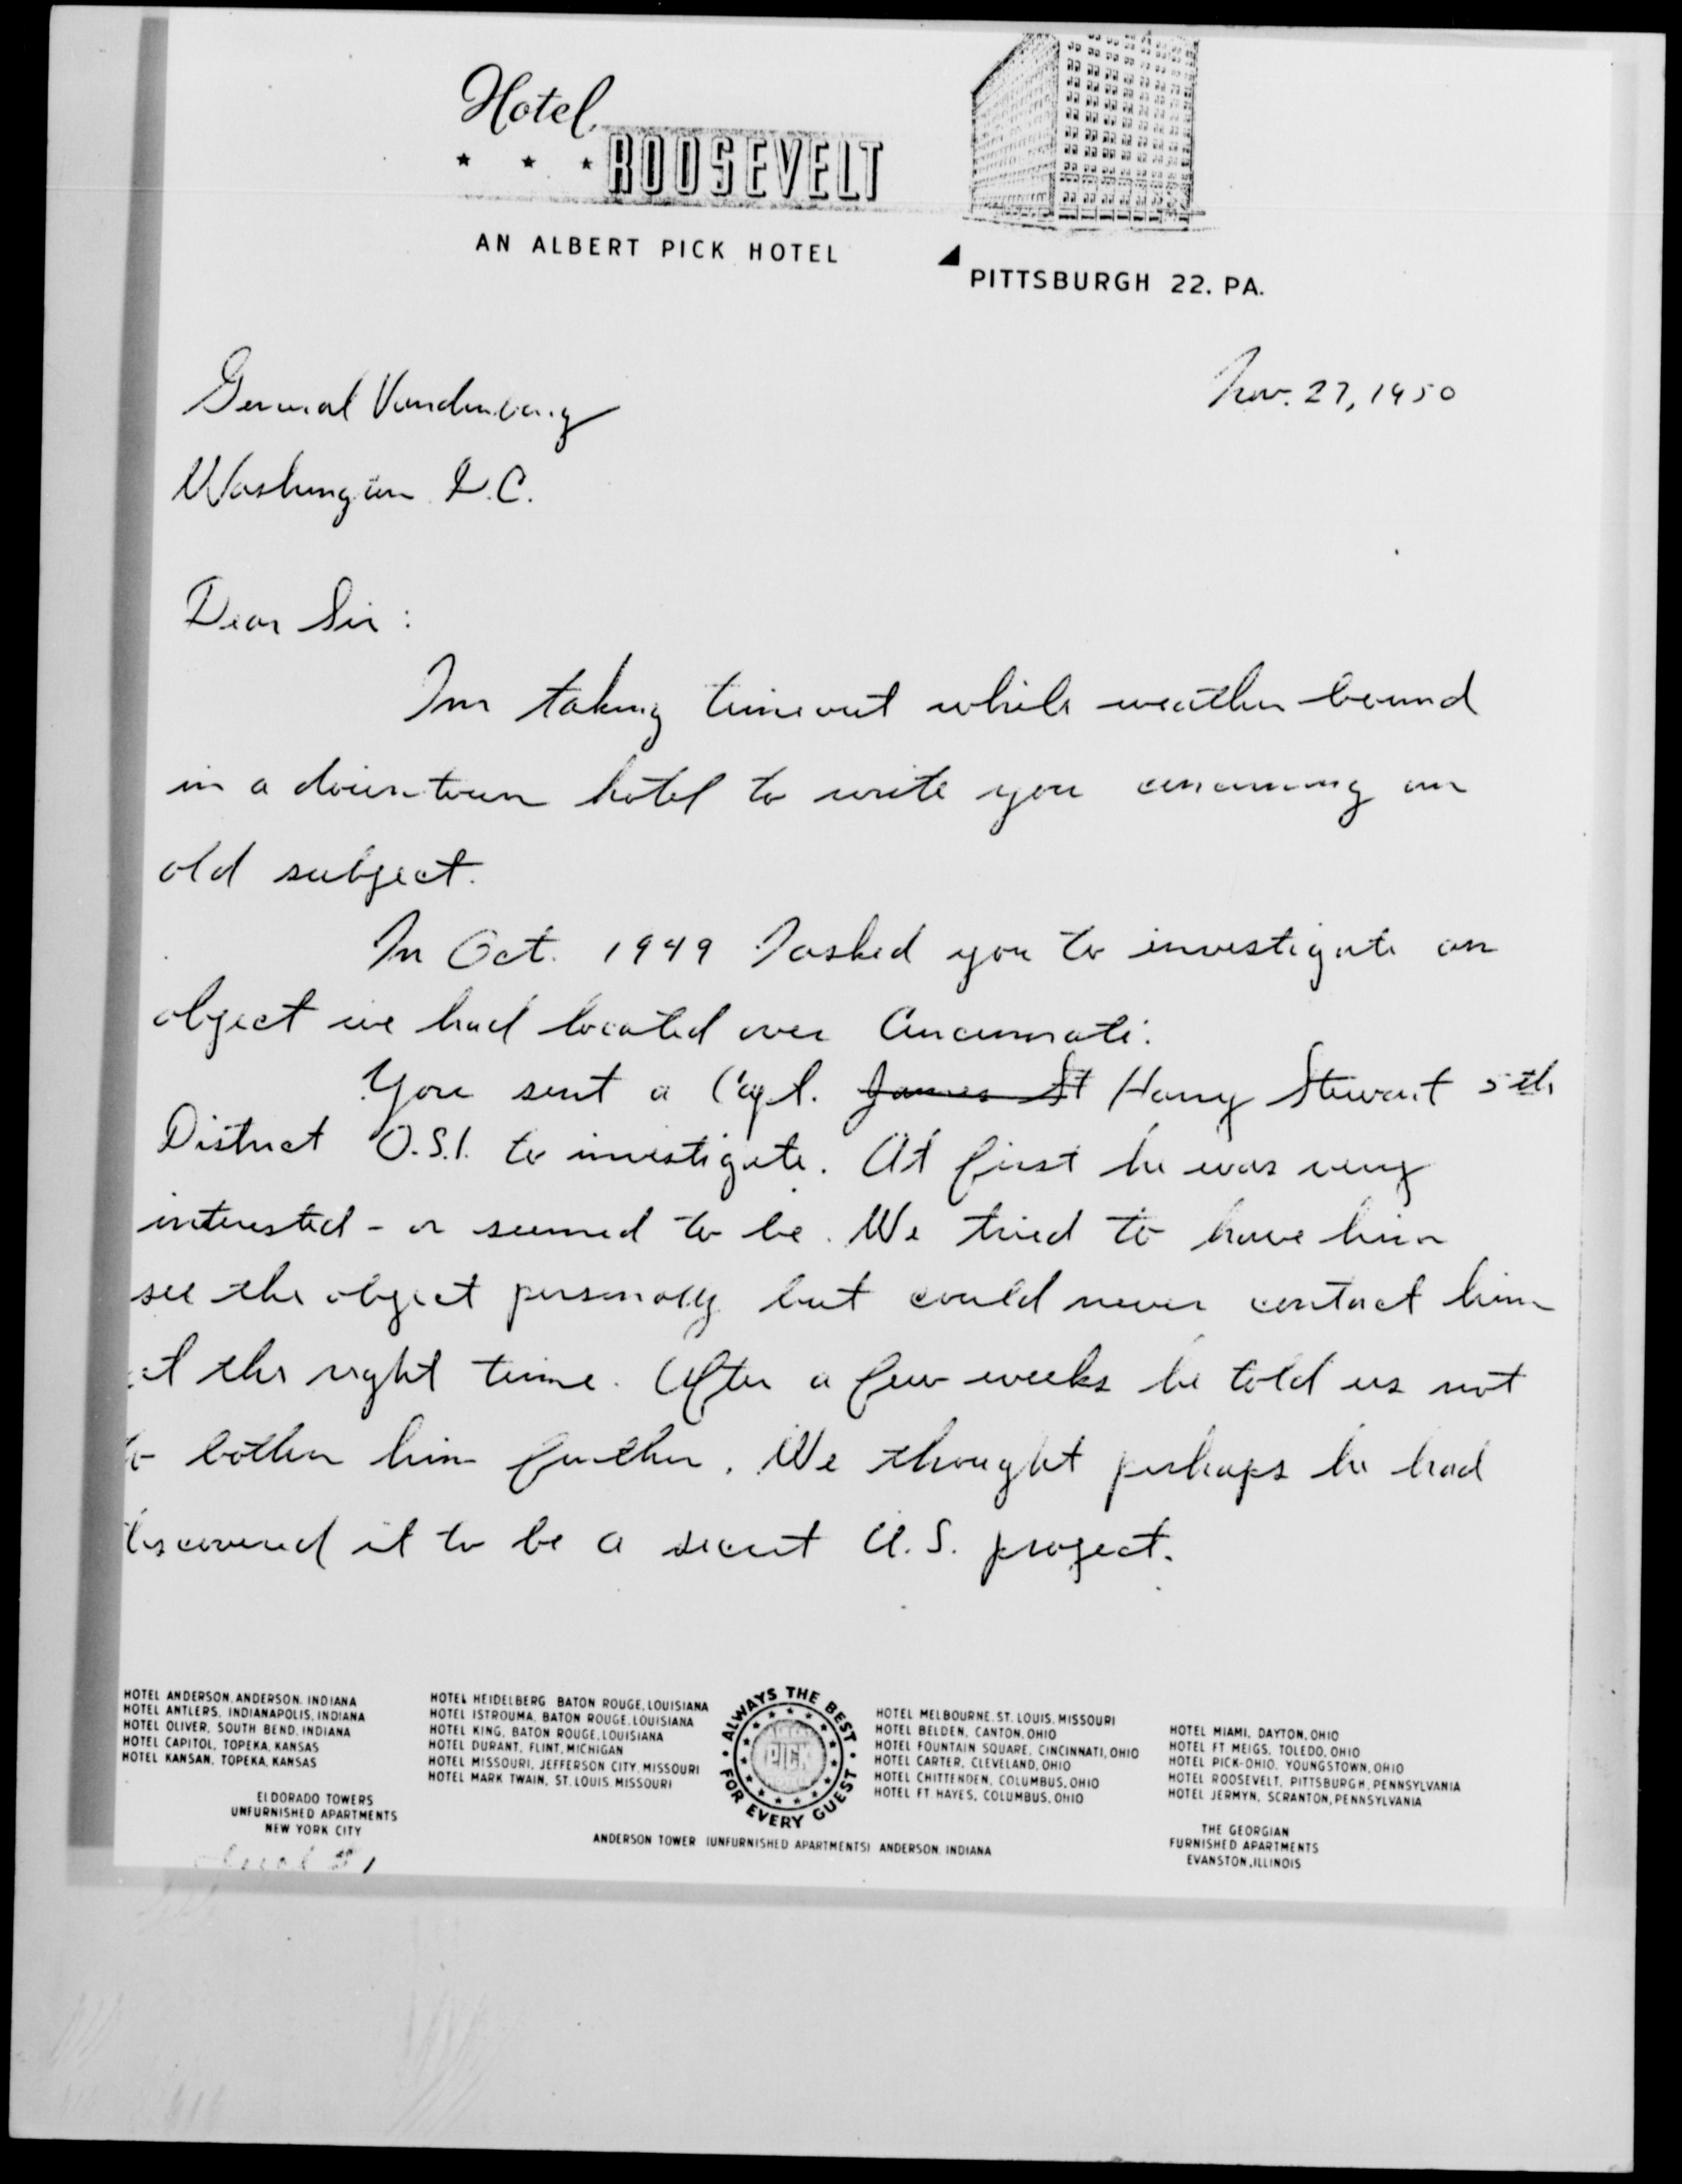 Hotel
ROOSEVELT
AN ALBERT PICK HOTEL
PITTSBURGH 22. PA.
Nov. 27, 1950
General Vandenberg
Washington D.C.
Dear Sir:
Im taking timeout while weather bound
in a downtown hotel to write you concerning an
old subject.
In Oct. 1949 I asked you to investigate an
object we had located over Cincinnati.
You sent a Capt. James St Harry Stewart 5th
District O.S.I. to investigate. At first he was very
interested - or seemed to be. We tried to have him
see the object personally but could never contact him
at the right time. After a few weeks he told us not
to bother him further. We thought perhaps he had
discovered it to be a secret U.S. project.
HOTEL ANDERSON, ANDERSON, INDIANA
HOTEL ANTLERS, INDIANAPOLIS, INDIANA
HOTEL OLIVER, SOUTH BEND, INDIANA
HOTEL CAPITOL, TOPEKA, KANSAS
HOTEL KANSAN, TOPEKA, KANSAS
El DORADO TOWERS
UNFURNISHED APARTMENTS
NEW YORK CITY
HOTEL HEIDELBERG BATON ROUGE, LOUISIANA
HOTEL ISTROUMA, BATON ROUGE, LOUISIANA
HOTEL KING, BATON ROUGE, LOUISIANA
HOTEL DURANT, FLINT, MICHIGAN
HOTEL MISSOURI, JEFFERSON CITY, MISSOURI
HOTEL MARK TWAIN, ST. LOUIS, MISSOURI
ALWAYS THE BEST
PICK
FOR EVERY GUEST
ANDERSON TOWER (UNFURNISHED APARTMENTS) ANDERSON, INDIANA
HOTEL MELBOURNE, ST. LOUIS, MISSOURI
HOTEL BELDEN, CANTON, OHIO
HOTEL FOUNTAIN SQUARE, CINCINNATI, OHIO
HOTEL CARTER, CLEVELAND, OHIO
HOTEL CHITTENDEN, COLUMBUS, OHIO
HOTEL FT. HAYES, COLUMBUS, OHIO
HOTEL MIAMI, DAYTON, OHIO
HOTEL FT. MEIGS, TOLEDO, OHIO
HOTEL PICK-OHIO, YOUNGSTOWN, OHIO
HOTEL ROOSEVELT, PITTSBURGH, PENNSYLVANIA
HOTEL JERMYN, SCRANTON, PENNSYLVANIA
THE GEORGIAN
FURNISHED APARTMENTS
EVANSTON, ILLINOIS